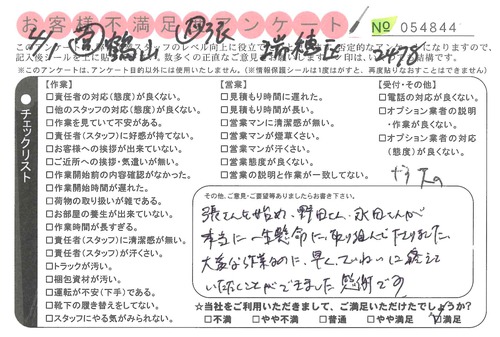 お客様不満足度アンケート
No 054844
このアンケートは
スタッフのレベル向上に役立て
否定的なアンケートになりますので、
記入後シールを上に貼
数多くの正直なご意見
※このアンケートは、アンケート目的以外には使用いたしません。（※情報保護シールは1度はがすと、再度貼りなおすことはできません）
チェックリスト
【作業】
□責任者の対応(態度)が良くない。
□他のスタッフの対応(態度)が良くない。
□作業を見ていて不安がある。
□責任者(スタッフ)に好感が持てない。
□お客様への挨拶が出来ていない。
□ご近所への挨拶・気遣いが無い。
□作業開始前の内容確認がなかった。
□作業開始時間が遅れた。
□荷物の取り扱いが雑である。
□お部屋の養生が出来ていない。
□作業時間が長すぎる。
□責任者(スタッフ)に清潔感が無い。
□責任者(スタッフ)が汗くさい。
□トラックが汚い。
□梱包資材が汚い。
□運転が不安(下手)である。
□靴下の履き替えをしてない。
□スタッフにやる気がみられない。
【営業】
□見積もり時間に遅れた。
□見積もり時間が長い。
□営業マンに清潔感が無い。
□営業マンが煙草くさい。
□営業マンが汗くさい。
□営業態度が良くない。
□営業の説明と作業が一致してない。
【受付・その他】
□電話の対応が良くない。
□オプション業者の説明
・作業が良くない。
□オプション業者の対応
(態度)が良くない。
その他、ご意見・ご要望等ありましたらお書き下さい。
張さんを始め、野田さん、永田さんが
本当に一生懸命に、取り組んで下さりました。
大変な作業なのに、早く、ていねいに終えて
いただくことができました。感謝です。
☆当社をご利用いただきまして、ご満足いただけたでしょうか？
□不満 □やや不満 □普通 □やや満足 □満足